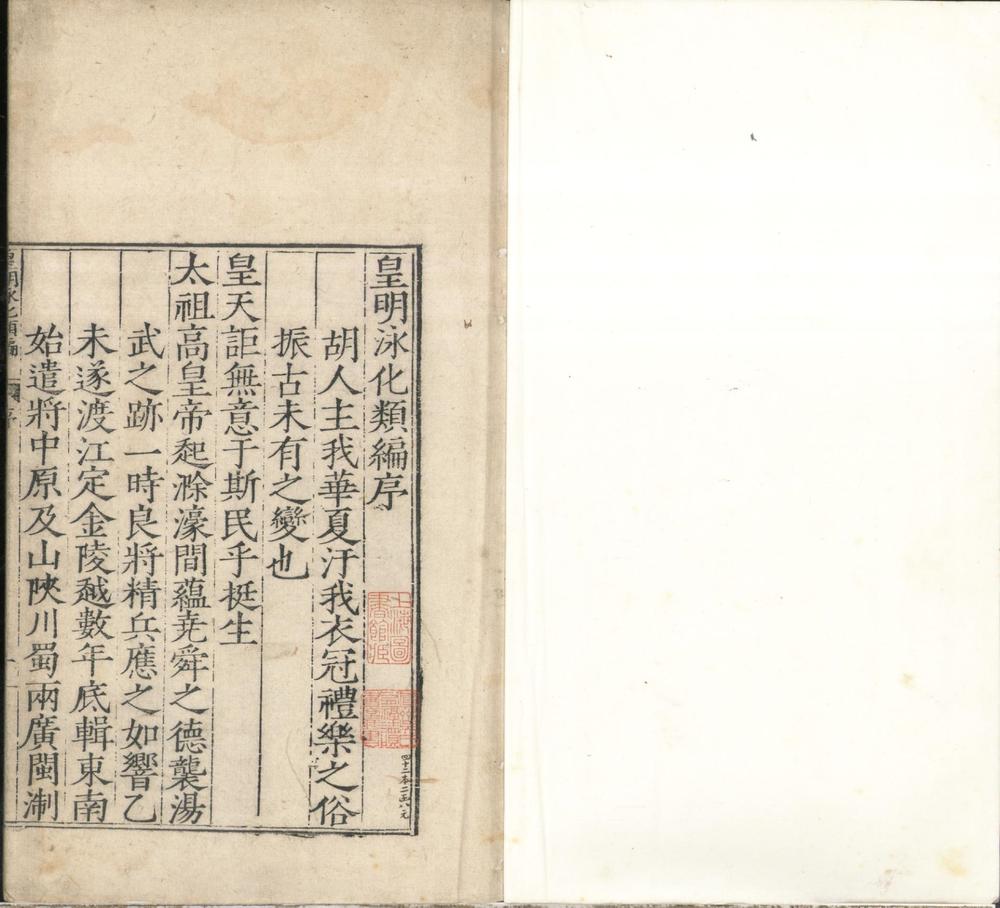 皇明泳化類編序
胡人主我華夏汙我衣冠禮樂之俗
振古未有之變也
皇天詎無意于斯民乎挺生
太祖高皇帝起滁濠間蘊堯舜之德襲湯
武之跡一時良將精兵應之如響乙
未遂渡江定金陵越數年底輯東南
始遣將中原及山陜川蜀兩廣閩淛
皇明泳化類編 序
上海圖書館藏
四十二本二函八元